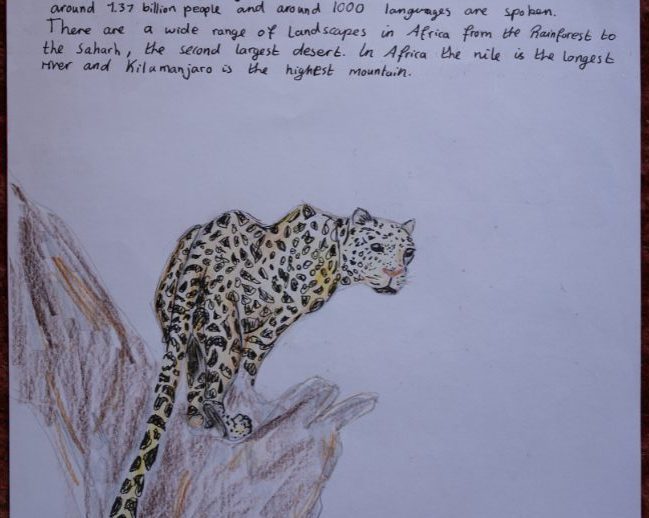 around 1.37 billion people and around 1000 languages are spoken.
There are a wide range of Landscapes in Africa from the Rainforest to
the Saharh, the second largest desert. In Africa the nile is the Longest
river and Kilamanjaro is the highest mountain.